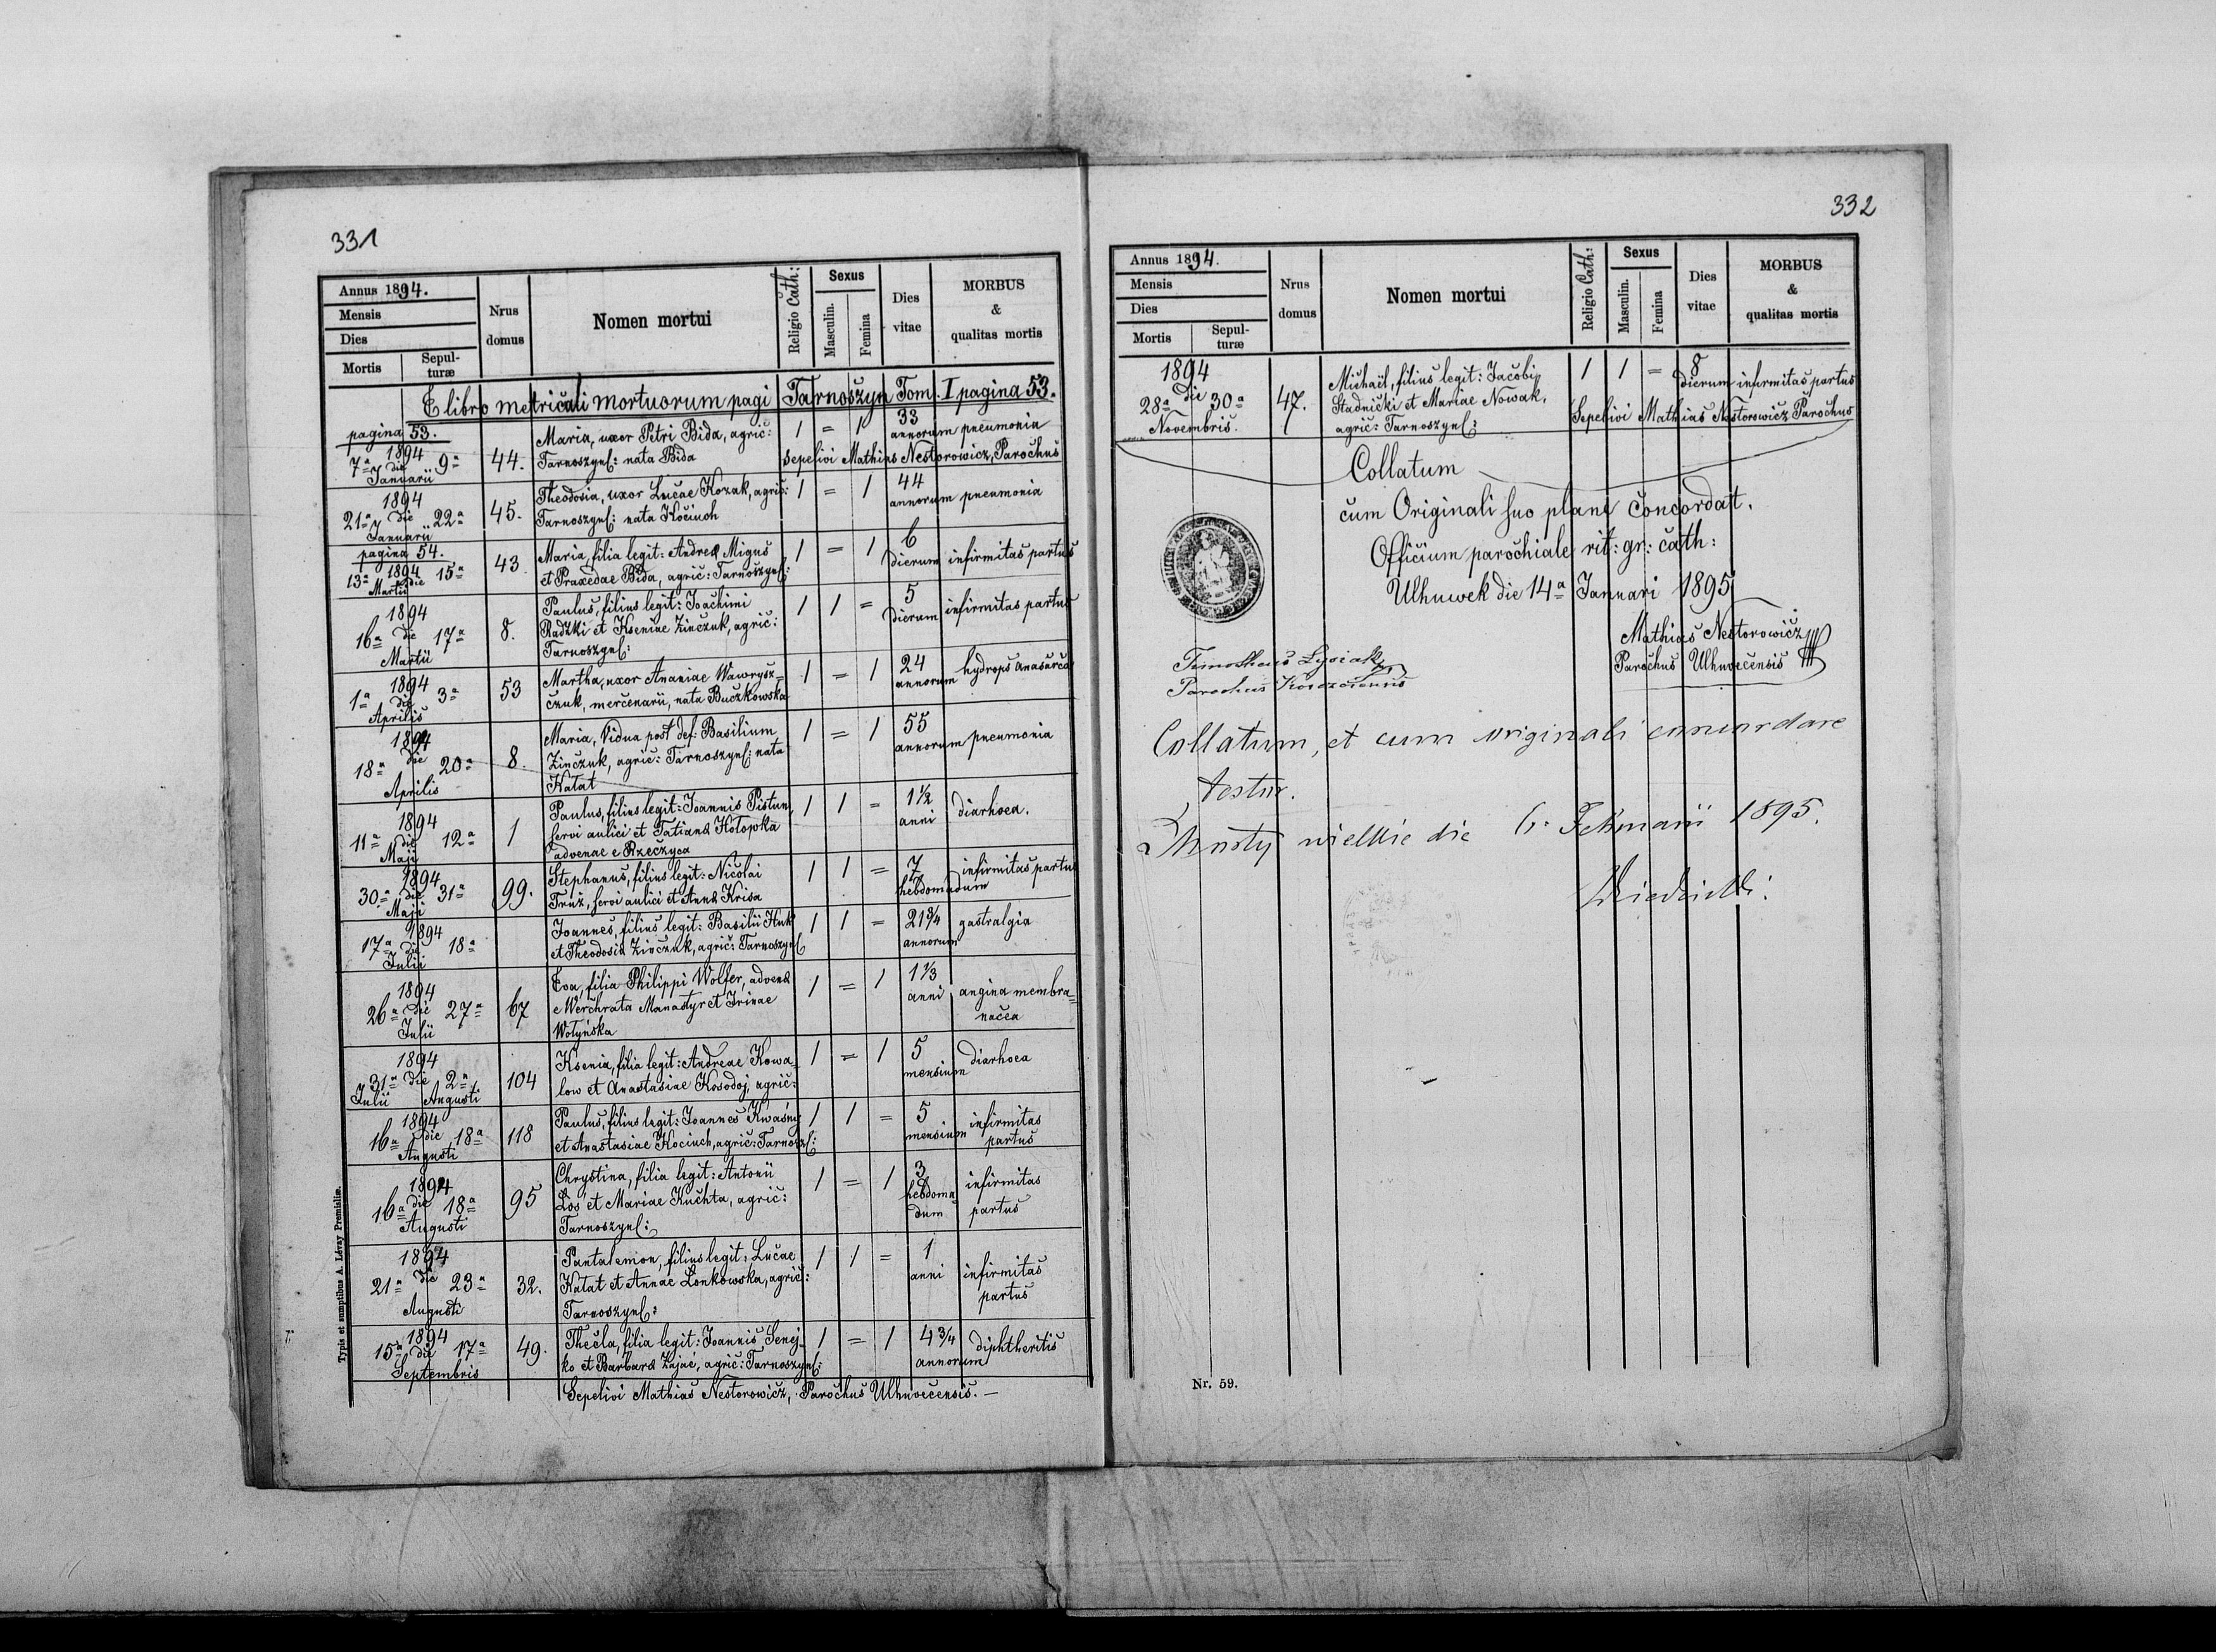 331
Annus 1894.
Mensis
Dies
Mortis
Sepul-
turæ
Nrus
domus
Nomen mortui
Religio Cath:
Sexus
Masculin.
Femina
Dies
vitae
MORBUS
&
qualitas mortis
E libro metricali mortuorum pagi Tarnoszyn Tom. I pagina 53.
pagina 53.
1894
7ª die 9ª
Januarii
44.
Maria, uxor Petri Bida, agric:
Tarnoszynſ: nata Bida
1 = 1
33
annorum pneumonia
Sepelivi Mathias Nestorowicz, Parochus
1894
21ª die 22ª
Januarii
45.
Theodosia, uxor Lucae Kozak, agric:
Tarnoszynſ: nata Kociuch
1 = 1
44
annorum pneumonia
pagina 54.
1894
13ª die 15ª
Martii
43
Maria, filia legit: Andreà Migus
et Praxedae Bida, agric: Tarnoszynſ:
1 = 1
6
dierum infirmitas partus
1894
16ª die 17ª
Martii
8.
Paulus, filius legit: Joachimi
Radzki et Kseniae Zinczuk, agric:
Tarnoszynſ:
1 1 =
5
dierum infirmitas partus
1894
1ª die 3ª
Aprilis
53
Martha, uxor Ananiae Wawrysz=
czuk, mercenarii, nata Buczkowska
1 = 1
24
annorum hydrops anasarca
1894
18ª die 20ª
Aprilis
8.
Maria, Vidua post def: Basilium
Zinczuk, agric: Tarnoszynſ: nata
Hatat
1 = 1
55
annorum pneumonia
1894
11ª die 12ª
Maji
1
Paulus, filius legit: Joannis Pistun,
servi aulici et Tatianà Holopka
advenae e Rzeczyca
1 1 =
1½
anni diarhoea.
1894
30ª die 31ª
Maji
99.
Stephanus, filius legit: Nicolai
Truz, servi aulici et Annà Krisa
1 1 =
7
hebdomadum
infirmitas partus
1894
17ª die 18ª
Julii
Joannes, filius legit: Basilii Huk
et Theodosià Zinczuk, agric: Tarnoszynſ
1 1 =
21¾
annorum
gastralgia
1894
26ª die 27ª
Julii
67
Eva, filia Philippi Wolfer, advenà
e Werchrata Manastyr et Irinae
Wołyńska
1 = 1
1⅓
anni
angina membra=
nacea
1894
31ª die 2ª
Julii Augusti
104
Ksenia, filia legit: Andreae Kowa=
low et Anastasiae Kosodoj, agric:
1 = 1
5
mensium
diarhoea
1894
16ª die 18ª
Augusti
118
Paulus, filius legit: Joannes Kwaśny
et Anastasiae Kociuch, agric: Tarnoszſ:
1 1 =
5
mensium
infirmitas
partus
1894
16ª die 18ª
Augusti
95
Chrystina, filia legit: Antonii
Łoś et Mariae Kuchta, agric:
Tarnoszynſ:
1 = 1
3
hebdoma
dum
infirmitas
partus
1894
21ª die 23ª
Augusti
32.
Pantalemon, filius legit: Lucae
Hatat et Annae Lonkowska, agric:
Tarnoszynſ:
1 1 =
1
anni
infirmitas
partus
1894
15ª die 17ª
Septembris
49.
Thecla, filia legit: Joannis Senej=
ko et Barbarà Zajac, agric: Tarnoszynſ:
1 = 1
4¾
annorum
diphtheritis
Sepelivi Mathias Nestorowicz, Parochus Ulhuvecensis. —
Typis et sumptibus A. Lévay Premisliæ.
332
Annus 1894.
Mensis
Dies
Mortis
Sepul-
turæ
Nrus
domus
Nomen mortui
Religio Cath:
Sexus
Masculin.
Femina
Dies
vitae
MORBUS
&
qualitas mortis
1894
28ª die 30ª
Novembris.
47.
Michaël, filius legit: Jacobi
Stadnicki et Mariae Nowak,
agric: Tarnoszynſ:
1 1 =
8
dierum infirmitas partus
Sepelivi Mathias Nestorowicz Parochus
Collatum
cum Originali suo plane concordat.
Officium parochiale rit: gr: cath:
Ulhuwek die 14ª Januari 1895
Mathias Nestorowicz
Parochus Ulhuvecensis
Timotheus Lysiak
Parochus
Collatum, et cum originali concordare
testor.
Mosty wielkie die 6. Februarii 1895.
Nr. 59.